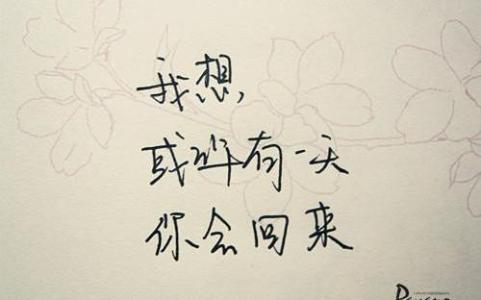 我想,
或许有一天
你会回来